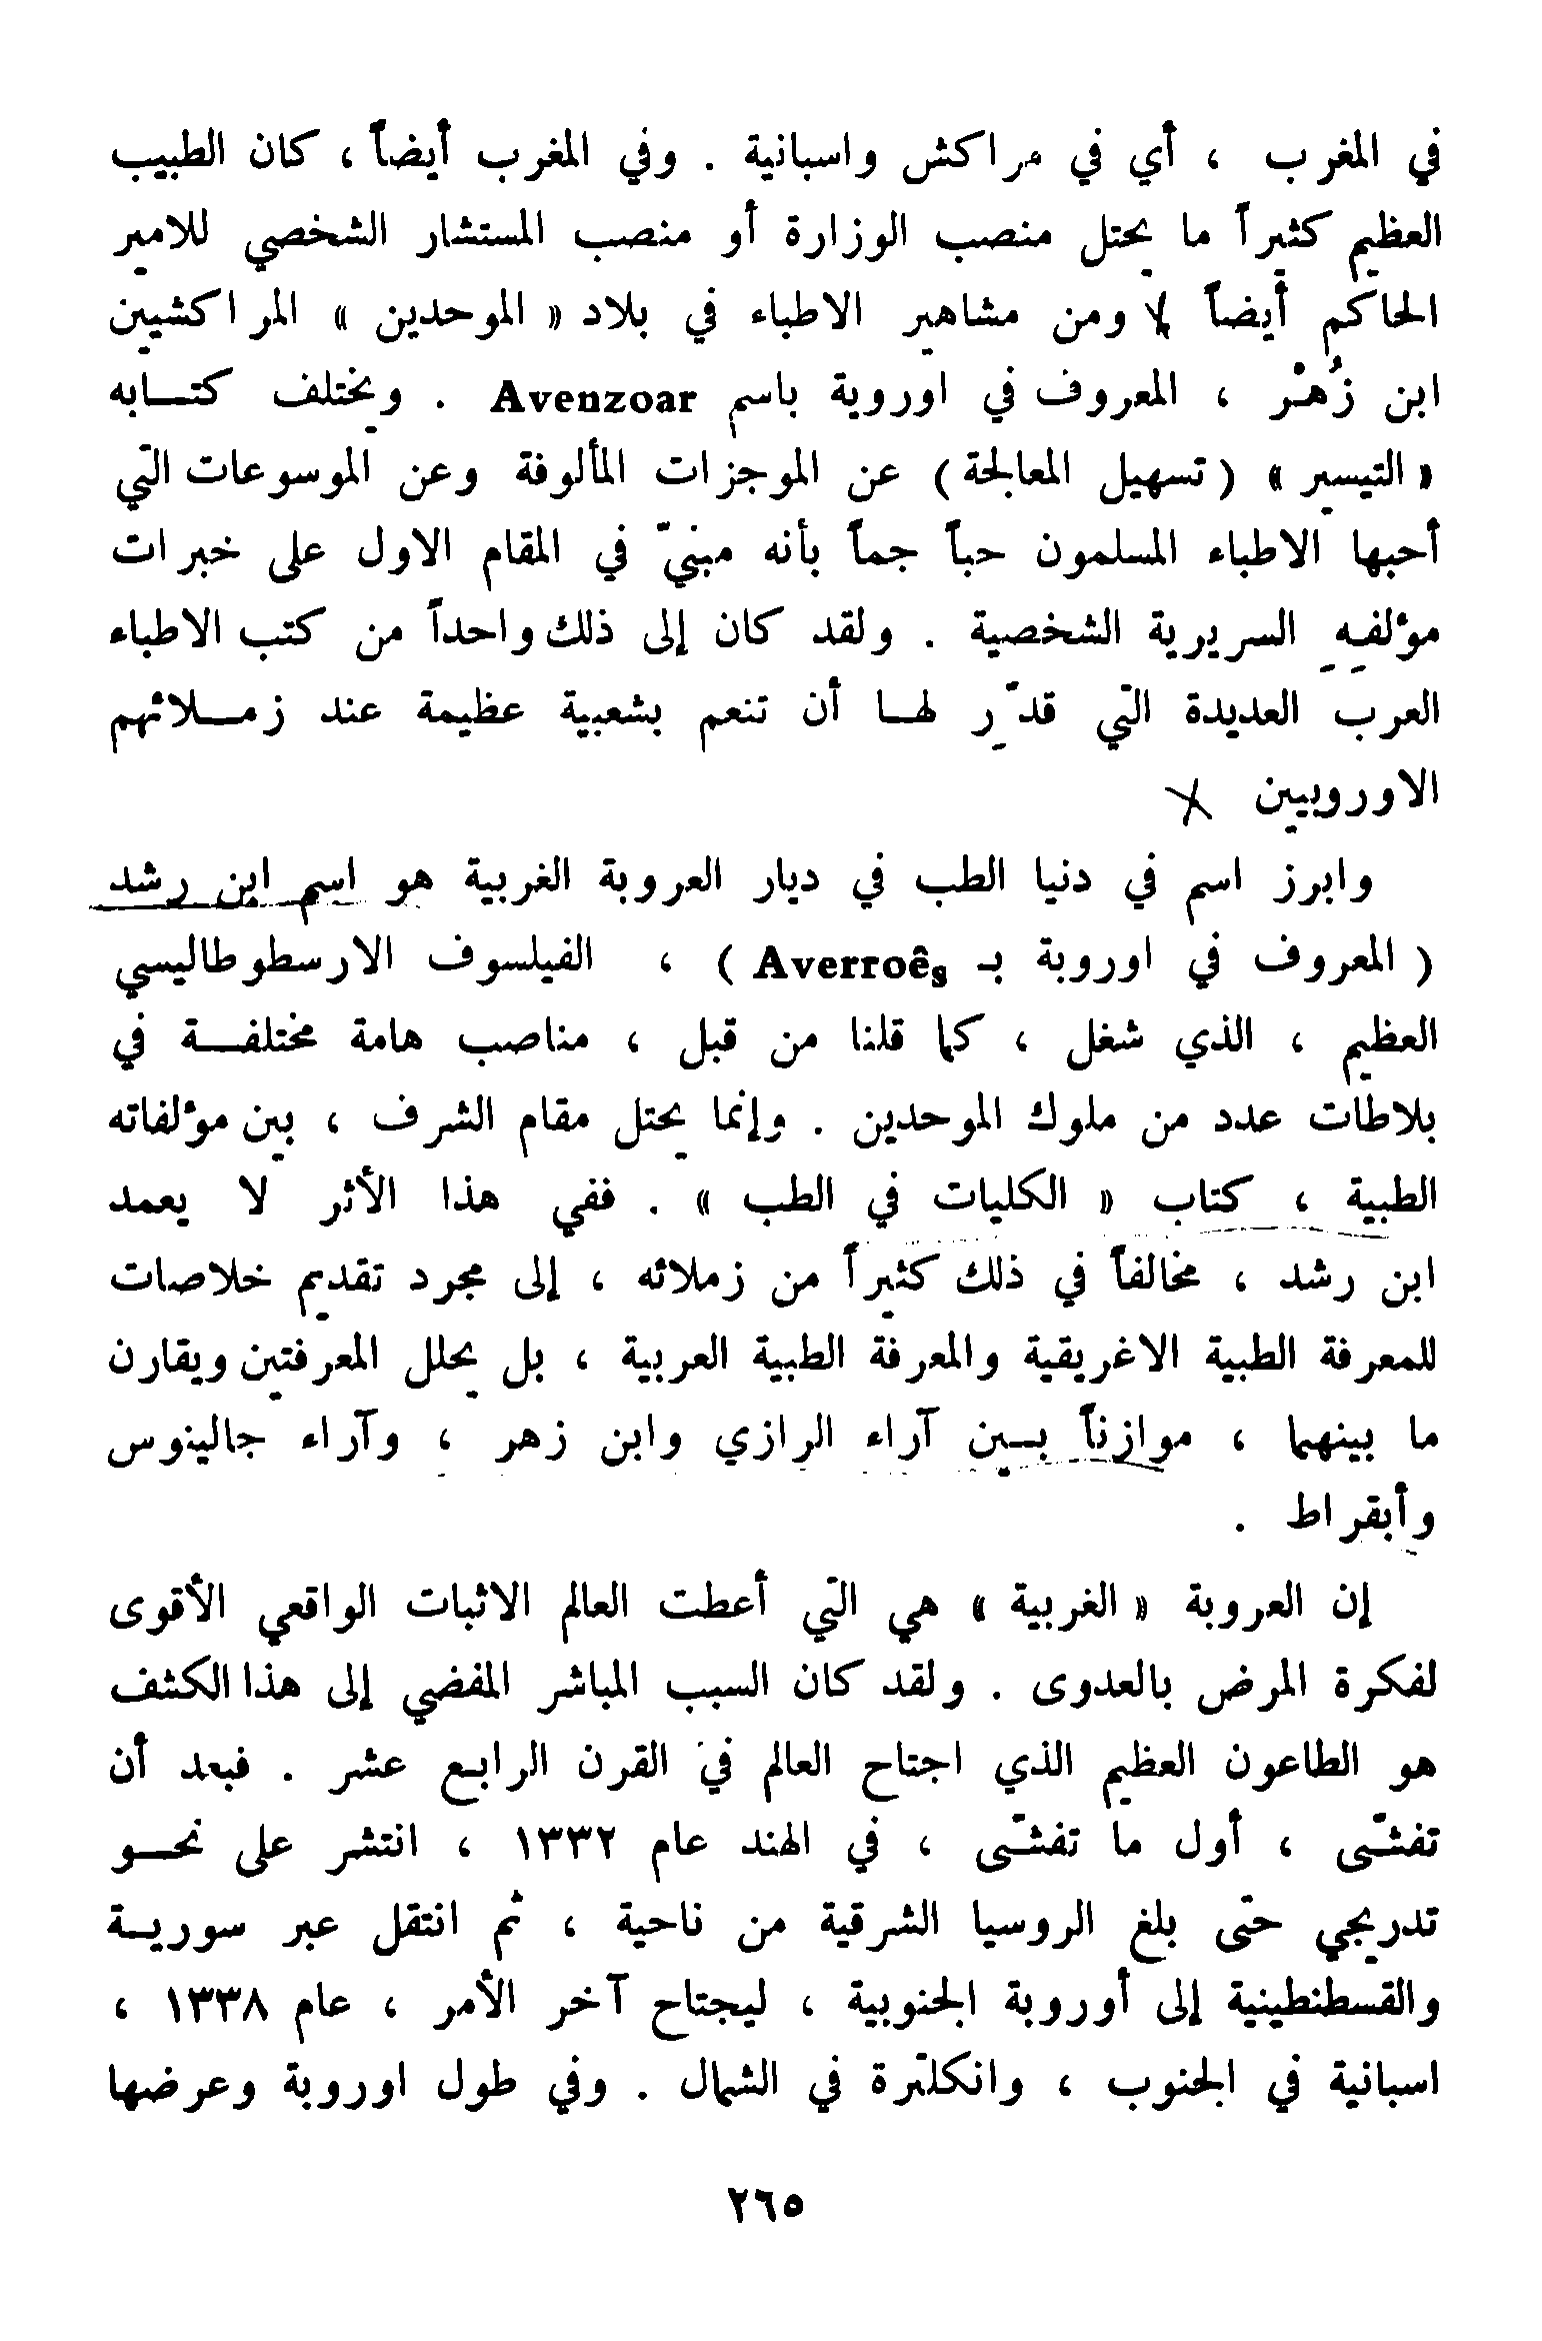 في المغرب ، أي في مراكش واسبانية . وفي المغرب أيضاً ، كان الطبيب
العظيم كثيراً ما يحتل منصب الوزارة أو منصب المستشار الشخصي للامير
الحاكم أيضاً ومن مشاهير الاطباء في بلاد « الموحدين » المراكشيين
ابن زُهْر ، المعروف في اوروبة باسم Avenzoar . ويختلف كتابه
« التيسير » ( تسهيل المعالجة ) عن الموجزات المألوفة وعن الموسوعات التي
أحبها الاطباء المسلمون حباً جماً بأنه مبنيّ في المقام الاول على خبرات
مؤلفيهِ السريرية الشخصية . ولقد كان إلى ذلك واحداً من كتب الاطباء
العرب العديدة التي قدّر لها أن تنعم بشعبية عظيمة عند زملائهم
الاوروبيين
وابرز اسم في دنيا الطب في ديار العروبة الغربية هو اسم ابن رشد
( المعروف في اوروبة بـ Averroês ) ، الفيلسوف الارسطوطاليسي
العظيم ، الذي شغل ، كما قلنا من قبل ، مناصب هامة مختلفة في
بلاطات عدد من ملوك الموحدين . وإنما يحتل مقام الشرف ، بين مؤلفاته
الطبية ، كتاب « الكليات في الطب » . ففي هذا الأثر لا يعمد
ابن رشد ، مخالفاً في ذلك كثيراً من زملائه ، إلى مجرد تقديم خلاصات
للمعرفة الطبية الاغريقية والمعرفة الطبية العربية ، بل يحلل المعرفتين ويقارن
ما بينهما ، موازناً بين آراء الرازي وابن زهر ، وآراء جالينوس
وأبقراط .
إن العروبة « الغربية » هي التي أعطت العالم الاثبات الواقعي الأقوى
لفكرة المرض بالعدوى . ولقد كان السبب المباشر المفضي إلى هذا الكشف
هو الطاعون العظيم الذي اجتاح العالم في القرن الرابع عشر . فبعد أن
تفشّى ، أول ما تفشّى ، في الهند عام ١٣٣٢ ، انتشر على نحو
تدريجي حتى بلغ الروسيا الشرقية من ناحية ، ثم انتقل عبر سورية
والقسطنطينية إلى أوروبة الجنوبية ، ليجتاح آخر الأمر ، عام ١٣٣٨ ،
اسبانية في الجنوب ، وانكلترة في الشمال . وفي طول اوروبة وعرضها
٢٦٥